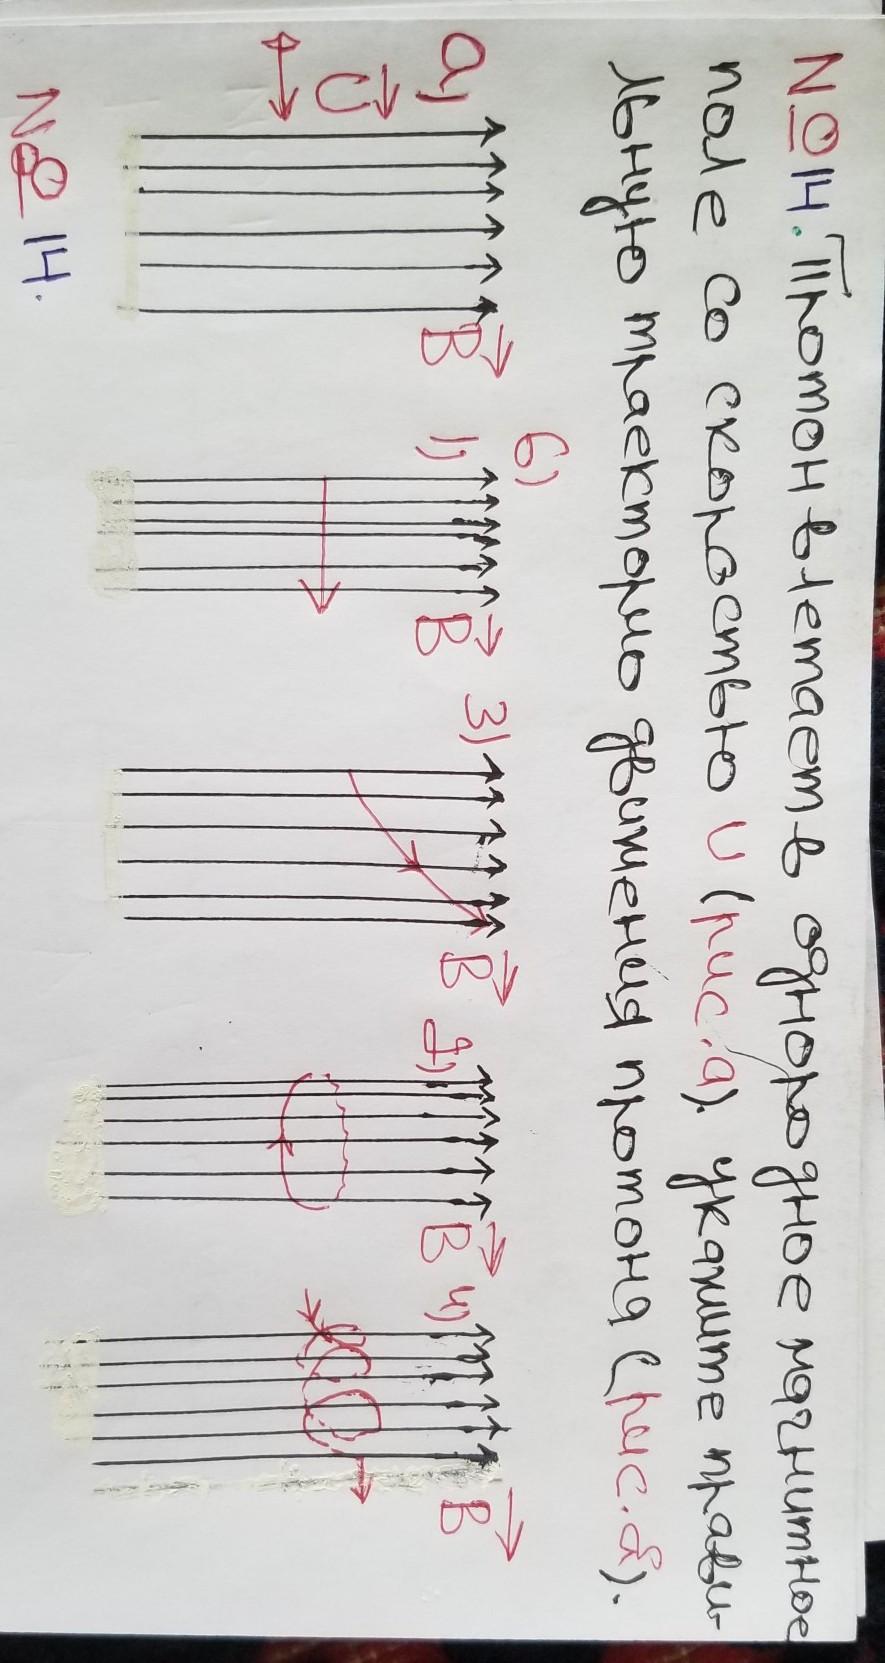 №14. Протон влетает в однородное магнитное
поле со скоростью υ (рис.а). укажите прави-
льную траекторию движения протона (рис.б).
б)
а) υ B
1) B
3) B
2) B
4) B
№14.